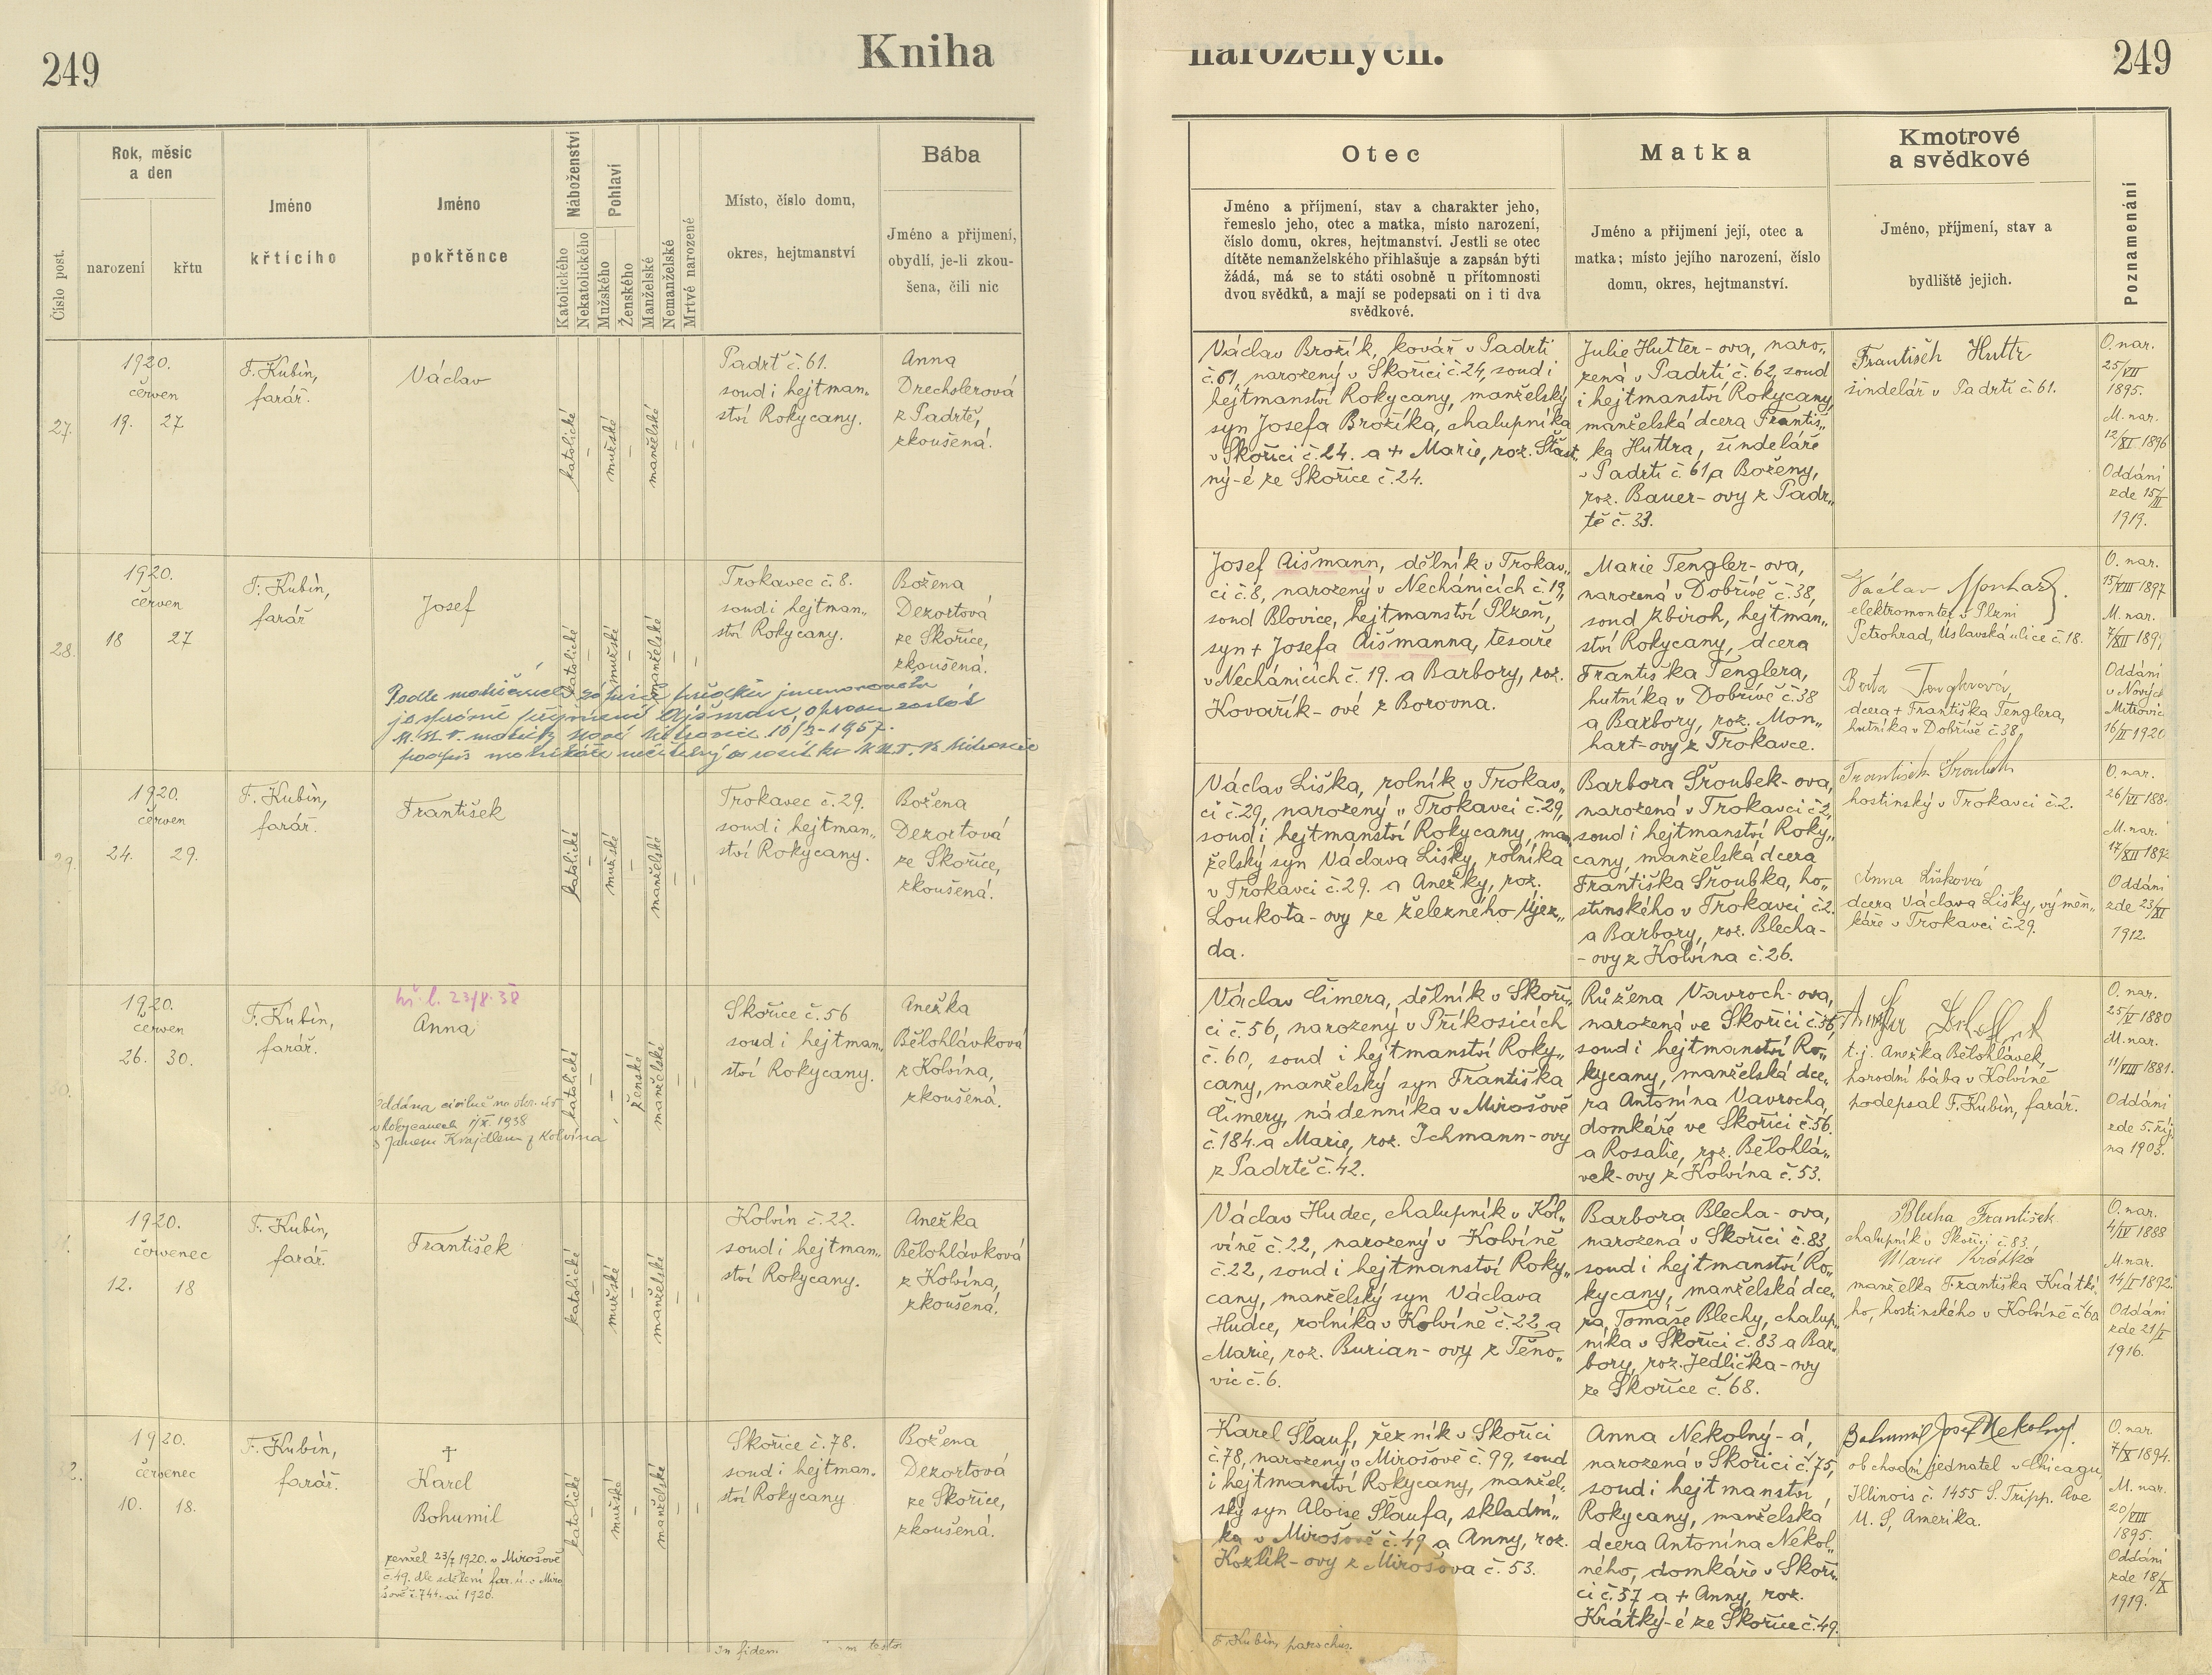 249
Kniha
narozených.
249
Číslo post.
Rok, měsíc
a den
narození
křtu
Jméno
křtícího
Jméno
pokřtěnce
Náboženství
Katolického
Nekatolického
Pohlaví
Mužského
Ženského
Manželské
Nemanželské
Mrtvé narozené
Místo, číslo domu,
okres, hejtmanství
Bába
Jméno a příjmení,
obydlí, je-li zkou-
šena, čili nic
Otec
Jméno a příjmení, stav a charakter jeho,
řemeslo jeho, otec a matka, místo narození,
číslo domu, okres, hejtmanství. Jestli se otec
dítěte nemanželského přihlašuje a zapsán býti
žádá, má se to státi osobně u přítomnosti
dvou svědků, a mají se podepsati on i ti dva
svědkové.
Matka
Jméno a přijmení její, otec a
matka; místo jejího narození, číslo
domu, okres, hejtmanství.
Kmotrové
a svědkové
Jméno, příjmení, stav a
bydliště jejich.
Poznamenání
27.
1920.
červen
19. 27
F. Kubín,
farář.
Václav
katolické
mužské
manželské
Padrť č. 61.
soud i hejtman„
ství Rokycany.
Anna
Drechslerová
z Padrtě,
zkoušená.
Václav Brožík, kovář v Padrti
č. 61, narozený v Skořici č. 24, soud i
hejtmanství Rokycany, manželský
syn Josefa Brožíka, chalupníka
v Skořici č. 24. a + Marie, roz. Šťast„
ný-é ze Skořice č. 24.
Julie Hutter-ova, naro„
zená v Padrti č. 62, soud
i hejtmanství Rokycany,
manželská dcera Františ„
ka Huttra, šindeláře
v Padrti č. 61 a Boženy,
roz. Bauer-ovy z Padr„
tě č. 33.
František Huttr
šindelář v Padrti č. 61.
O. nar.
25/VII
1895.
M. nar.
12/XI 1896
Oddáni
zde 15/II
1919.
28.
1920.
červen
18 27
F. Kubín,
farář
Josef
katolické
mužské
manželské
Trokavec č. 8.
soud i hejtman„
ství Rokycany.
Božena
Dezortová
ze Skořice,
zkoušená.
Josef Aišmann, dělník v Trokav„
ci č. 8, narozený v Nechánicích č. 19,
soud Blovice, hejtmanství Plzeň,
syn + Josefa Aišmanna, tesaře
v Nechánicích č. 19. a Barbory, roz.
Kovařík-ové z Borovna.
Marie Tengler-ova,
narozená v Dobřívě č. 38,
soud Zbiroh, hejtman„
ství Rokycany, dcera
Františka Tenglera,
hutníka v Dobřívě č. 38
a Barbory, roz. Mon„
hart-ovy z Trokavce.
Václav Monhart.
elektromontér v Plzni
Petrohrad, Úslavská ulice č. 18.
Berta Tenglerová,
dcera + Františka Tenglera,
hutníka v Dobřívě č. 38.
O. nar.
15/VIII 1897
M. nar.
Oddáni
v Nových
Mitrovic
16/II 1920
29.
1920.
červen
24. 29.
F. Kubín,
farář.
František
katolické
mužské
manželské
Trokavec č. 29.
soud i hejtman„
ství Rokycany.
Božena
Dezortová
ze Skořice,
zkoušená.
Václav Liška, rolník v Trokav„
ci č. 29, narozený v Trokavci č. 29,
soud i hejtmanství Rokycany, man„
želský syn Václava Lišky, rolníka
v Trokavci č. 29. a Anežky, roz.
Loukota-ovy ze Železného Újez„
da.
Barbora Šroubek-ova,
narozená v Trokavci č. 2,
soud i hejtmanství Roky„
cany, manželská dcera
Františka Šroubka, ho„
stinského v Trokavci č. 2.
a Barbory, roz. Blecha-
-ovy z Kolvína č. 26.
František Šroubek
hostinský v Trokavci č. 2.
Anna Lišková
dcera Václava Lišky, výměn„
káře v Trokavci č. 29.
O. nar.
26/VI 188
M. nar.
17/XII 1892
Oddáni
zde 23/XI
1912.
1920.
červen
26. 30.
F. Kubín,
farář.
23/8. 38
Anna
Oddána civilně na okr. úř.
v Rokycanech 1/X. 1938
s Janem Krajdlem z Kolvína
katolické
ženské
manželské
Skořice č. 56
soud i hejtman„
ství Rokycany.
Anežka
Bělohlávková
z Kolvína,
zkoušená.
Václav Cimera, dělník v Skoři„
ci č. 56, narozený v Příkosicích
č. 60, soud i hejtmanství Roky„
cany, manželský syn Františka
Cimery, nádenníka v Mirošově
č. 184. a Marie, roz. Ichmann-ovy
z Padrtě č. 42.
Růžena Vavroch-ova,
narozená ve Skořici č. 56,
soud i hejtmanství Ro„
kycany, manželská dce„
ra Antonína Vavrocha,
domkáře ve Skořici č. 56.
a Rosalie, roz. Bělohlá„
vek-ovy z Kolvína č. 53.
t. j. Anežka Bělohlávek,
porodní bába v Kolvíně
podepsal F. Kubín, farář.
O. nar.
25/V 1880
M. nar.
11/VIII 1881.
Oddáni
zde 5. říj
na 1903.
1920.
červenec
12. 18
F. Kubín,
farář.
František
katolické
mužské
manželské
Kolvín č. 22.
soud i hejtman„
ství Rokycany.
Anežka
Bělohlávková
z Kolvína,
zkoušená.
Václav Hudec, chalupník v Kol„
víně č. 22, narozený v Kolvíně
č. 22, soud i hejtmanství Roky„
cany, manželský syn Václava
Hudce, rolníka v Kolvíně č. 22 a
Marie, roz. Burian-ovy z Těno„
vic č. 6.
Barbora Blecha-ova,
narozená v Skořici č. 83,
soud i hejtmanství Ro„
kycany, manželská dce„
ra Tomáše Blechy, chalup„
níka v Skořici č. 83 a Bar„
bory, roz. Jedlička-ovy
ze Skořice č. 68.
Blecha František
chalupník v Skořici č. 83,
Marie Krátká
manželka Františka Krátké„
ho, hostinského v Kolvíně č. 60
O. nar.
4/IV 1888
M. nar.
14/I 1892.
Oddáni
zde 21/I
1916.
32.
1920.
červenec
10. 18.
F. Kubín,
farář.
†
Karel
Bohumil
zemřel 23/7 1920. v Mirošově
č. 49. dle sdělení far. ú. v Miro
šově č. 744. ai 1920.
katolické
mužské
manželské
Skořice č. 78.
soud i hejtman„
ství Rokycany
Božena
Dezortová
ze Skořice,
zkoušená.
Karel Šlauf, řezník v Skořici
č. 78, narozený v Mirošově č. 99, soud
i hejtmanství Rokycany, manžel„
ský syn Aloise Šlaufa, skladní„
ka v Mirošově č. 49 a Anny, roz.
Kozlík-ovy z Mirošova č. 53.
Anna Nekolný-á,
narozená v Skořici č. 75,
soud i hejtmanství
Rokycany, manželská
dcera Antonína Nekol„
ného, domkáře v Skoři„
ci č. 57 a + Anny, roz.
Krátký-é ze Skořice č. 49.
Bohumil Josef Nekolný.
obchodní jednatel v Chicagu,
Illinois č. 1455 S. Tripp. Ave
U. S. Amerika.
O. nar.
7/X 1894.
M. nar.
20/VIII
1895.
Oddáni
zde 18/X
1919.
In fidem
F. Kubín, parochus.